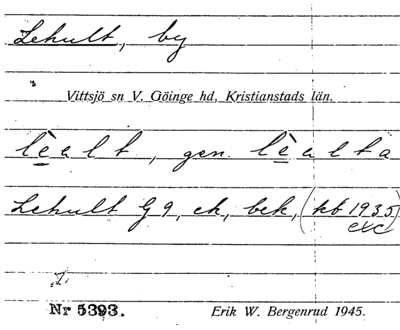 Lehult, by
Vittsjö sn V. Göinge hd, Kristianstads län.
lè̠alt, gen. lè̠alta
Lehult G 9, ek, bek, (kb 1935)
exc
Nr 5393. Erik W. Bergenrud 1945.